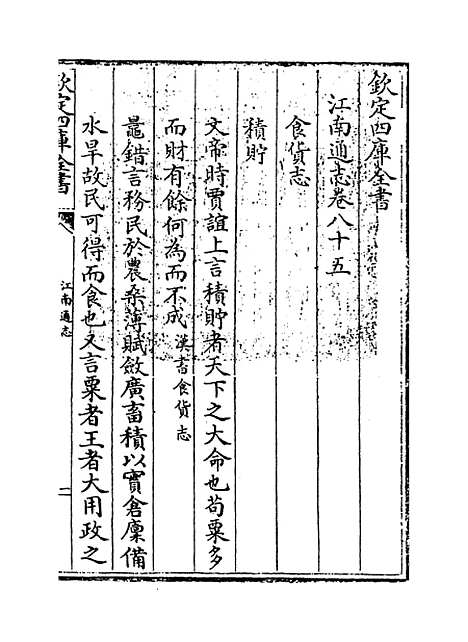 欽定四庫全書
江南通志卷八十五
食貨志
積貯
文帝時賈誼上言積貯者天下之大命也苟粟多
而財有餘何為而不成漢書食貨志
鼂錯言務民於農桑薄賦斂廣畜積以實倉廩備
水旱故民可得而食也又言粟者王者大用政之
欽定四庫全書
江南通志